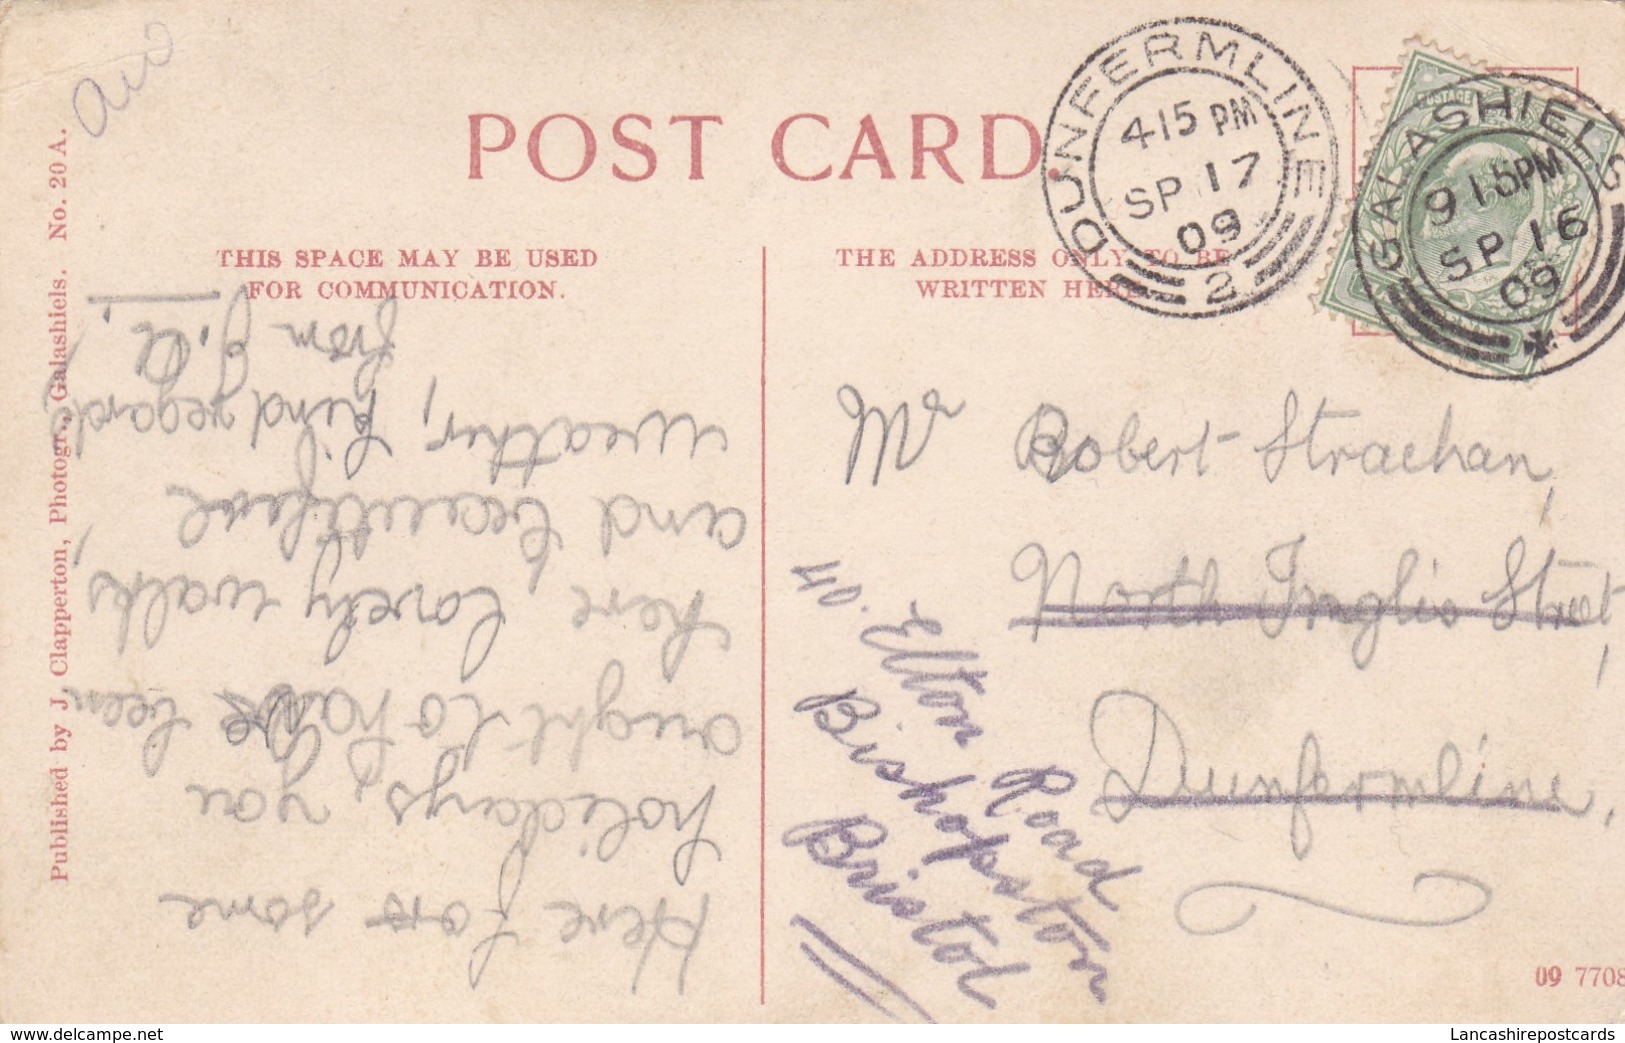 POST CARD.
THIS SPACE MAY BE USED
FOR COMMUNICATION.
THE ADDRESS ONLY TO BE
WRITTEN HERE.
DUNFERMLINE
415 PM
SP 17
09
2
GALASHIELS
915PM
SP 16
09
POSTAGE
Here for some
holidays, you
ought to have been
here, lovely walks,
and beautiful
weather, kind regards,
from
Mr Robert Strachan,
North Inglis Street,
Dunfermline,
40. Elton Road
Bishopston
Bristol
Published by J. Clapperton, Photogr., Galashiels. No. 20 A.
09 7708
Lancashirepostcards